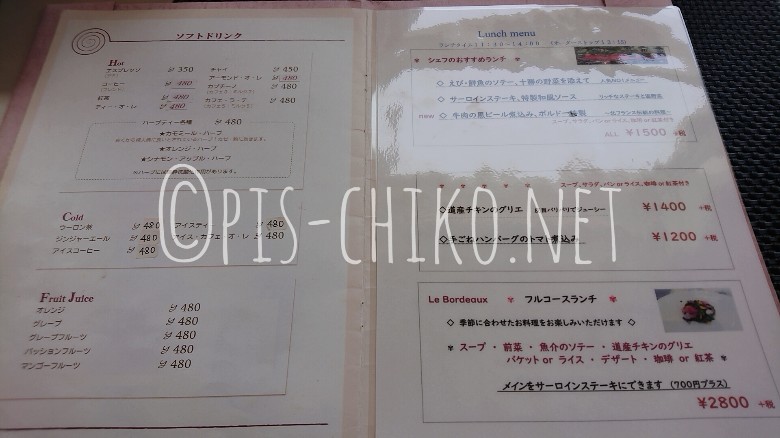 ソフトドリンク
Hot
エスプレッソ 450
350 チャイ
コーヒー 480 アーモンド・オ・レ 480
紅茶 480 カプチーノ
ティー・オ・レ 480 カフェ・ラ・テ 480
ハーブティー各種 480
★カモミール・ハーブ
★オレンジ・ハーブ
★シナモン・アップル・ハーブ
Cold
ウーロン茶 480 アイスティー 480
ジンジャーエール 480 アイス・カフェ・オ・レ 480
アイスコーヒー 480
Fruit Juice
オレンジ 480
グレープ 480
グレープフルーツ 480
パッションフルーツ 480
マンゴーフルーツ 480
Lunch menu
シェフのおすすめランチ
◇ えび・鮮魚のソテー、十勝の野菜を添えて
◇ サーロインステーキ、特製和風ソース
NEW ◇ 牛肉の黒ビール煮込み、ボルドー
スープ、サラダ、パン or ライス、珈琲 or 紅茶付き
ALL ¥1500 +税
スープ、サラダ、パン or ライス、珈琲 or 紅茶付き
◇道産チキンのグリエ 皮目パリパリでジューシー ¥1400 +税
◇手ごねハンバーグのトマト煮込み ¥1200 +税
Le Bordeaux フルコースランチ
◇ 季節に合わせたお料理をお楽しみいただけます ◇
スープ ・ 前菜 ・ 魚介のソテー ・ 道産チキンのグリエ
バケット or ライス ・ デザート ・ 珈琲 or 紅茶
メインをサーロインステーキにできます (700円プラス)
¥2800 +税
©PIS-CHIKO.NET